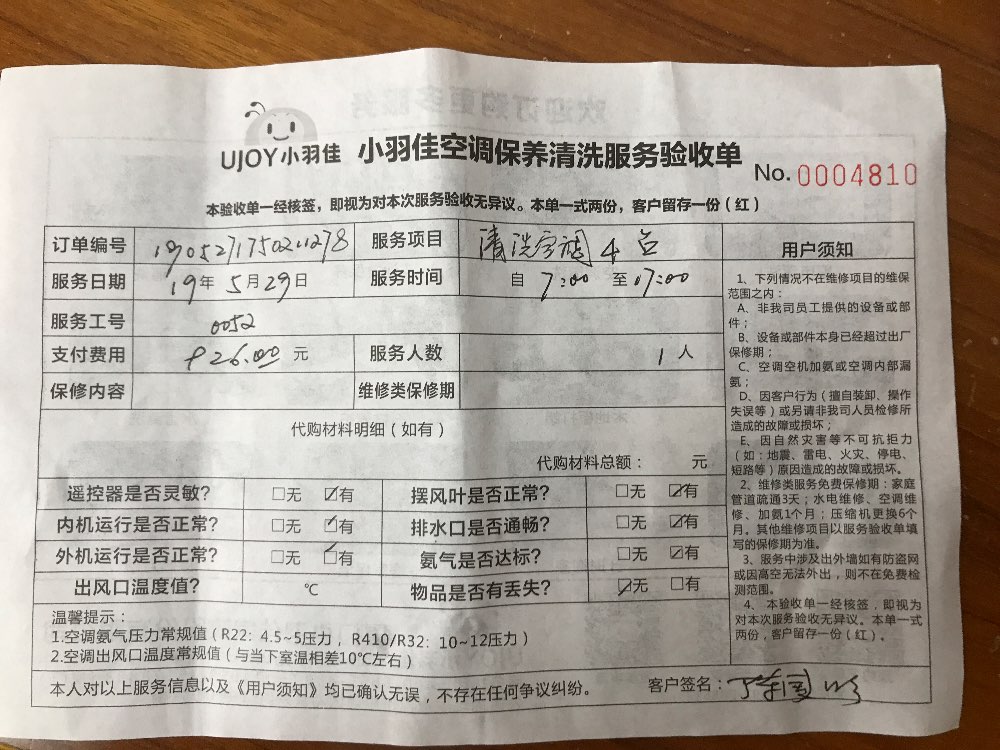 UJOY小羽佳 小羽佳空调保养清洗服务验收单
No.0004810
本验收单一经核签，即视为对本次服务验收无异议。本单一式两份，客户留存一份（红）
订单编号 服务项目 清洗空调4台
服务日期 19年5月29日 服务时间 自 7:00 至17:00
服务工号 0052
支付费用 元 服务人数 1人
保修内容 维修类保修期
代购材料明细（如有）
代购材料总额： 元
遥控器是否灵敏？ □无 ☑有 摆风叶是否正常？ □无 ☑有
内机运行是否正常？ □无 ☑有 排水口是否通畅？ □无 ☑有
外机运行是否正常？ □无 ☑有 氨气是否达标？ □无 ☑有
出风口温度值？ ℃ 物品是否有丢失？ ☑无 □有
温馨提示：
1.空调氨气压力常规值（R22：4.5~5压力，R410/R32：10~12压力）
2.空调出风口温度常规值（与当下室温相差10℃左右）
本人对以上服务信息以及《用户须知》均已确认无误，不存在任何争议纠纷。 客户签名：
用户须知
1、下列情况不在维修项目的维保
范围之内：
A、非我司员工提供的设备或部
件；
B、设备或部件本身已经超过出厂
保修期；
C、空调空机加氨或空调内部漏
氨；
D、因客户行为（擅自装卸、操作
失误等）或另请非我司人员检修所
造成的故障或损坏；
E、因自然灾害等不可抗拒力
（如：地震、雷电、火灾、停电、
短路等）原因造成的故障或损坏。
2、维修类服务免费保修期：家庭
管道疏通3天；水电维修、空调维
修、加氨1个月；压缩机更换6个
月。其他维修项目以服务验收单填
写的保修期为准。
3、服务中涉及出外墙如有防盗网
或因高空无法外出，则不在免费检
测范围。
4、本验收单一经核签，即视为
对本次服务验收无异议。本单一式
两份，客户留存一份（红）。